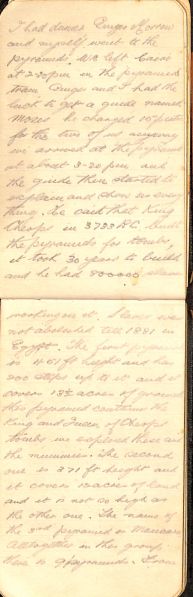 I had dinner
and myself went to the
pyramids. We left Cairo
at 2-30 pm in the pyramids
tram and I had the
luck to get a guide named
Moses. He charged 15 piastres
for the two of us anyway
we arrived at the pyramids
at about 3-20 pm and
the guide then started to
explain and show us every
thing. He said that King
Cheops in 3733 B.C. built
the pyramids for tombs,
it took 30 years to build
and he had 800000 slaves
working on it. Slaves were
not abolished till 1881 in
Egypt. The first pyramid
is 451 ft height and has
200 steps up to it and it
covers 13½ acres of ground
this pyramid contains the
King and Queen of Cheops
tombs we explored these and
the mummies. The second
one is 371 ft height and
it covers acres of land
and it is not so high as
the other one. The name of
the 3rd pyramid is
Alltogether in this group
there is 9 pyramids. From